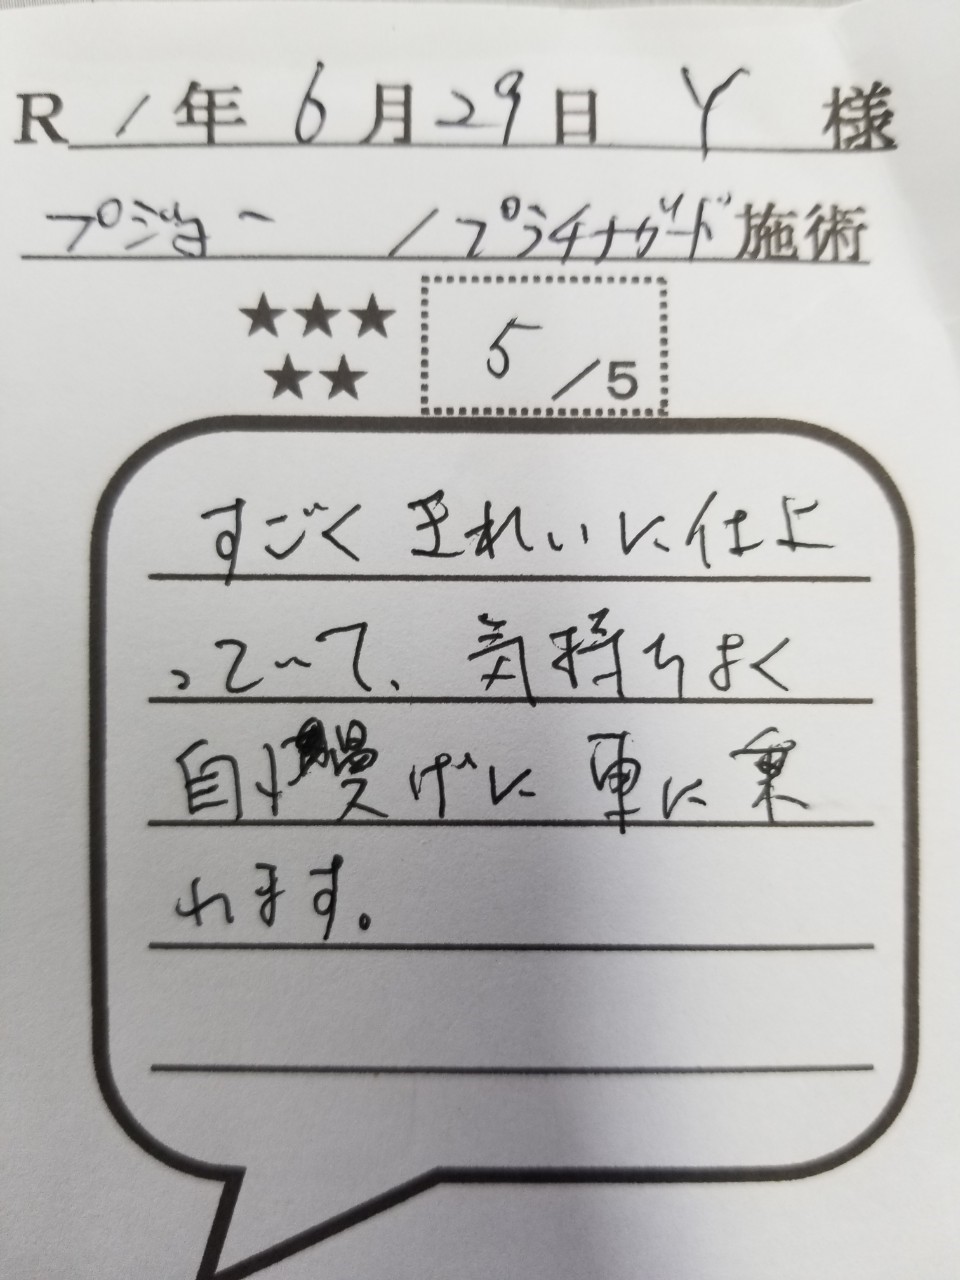 R 1年 6月29日 Y 様
プジョー / プラチナガード施術
★★★
★★
5/5
すごくきれいに仕上
っていて、気持ちよく
自慢げに車に乗
れます。